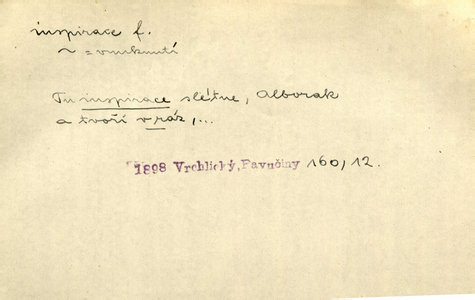 inspirace f.
~ = vnuknutí
Tu inspirace slétne, Alborak
a tvoří v ráz,...
1898 Vrchlický, Pavučiny 160, 12.